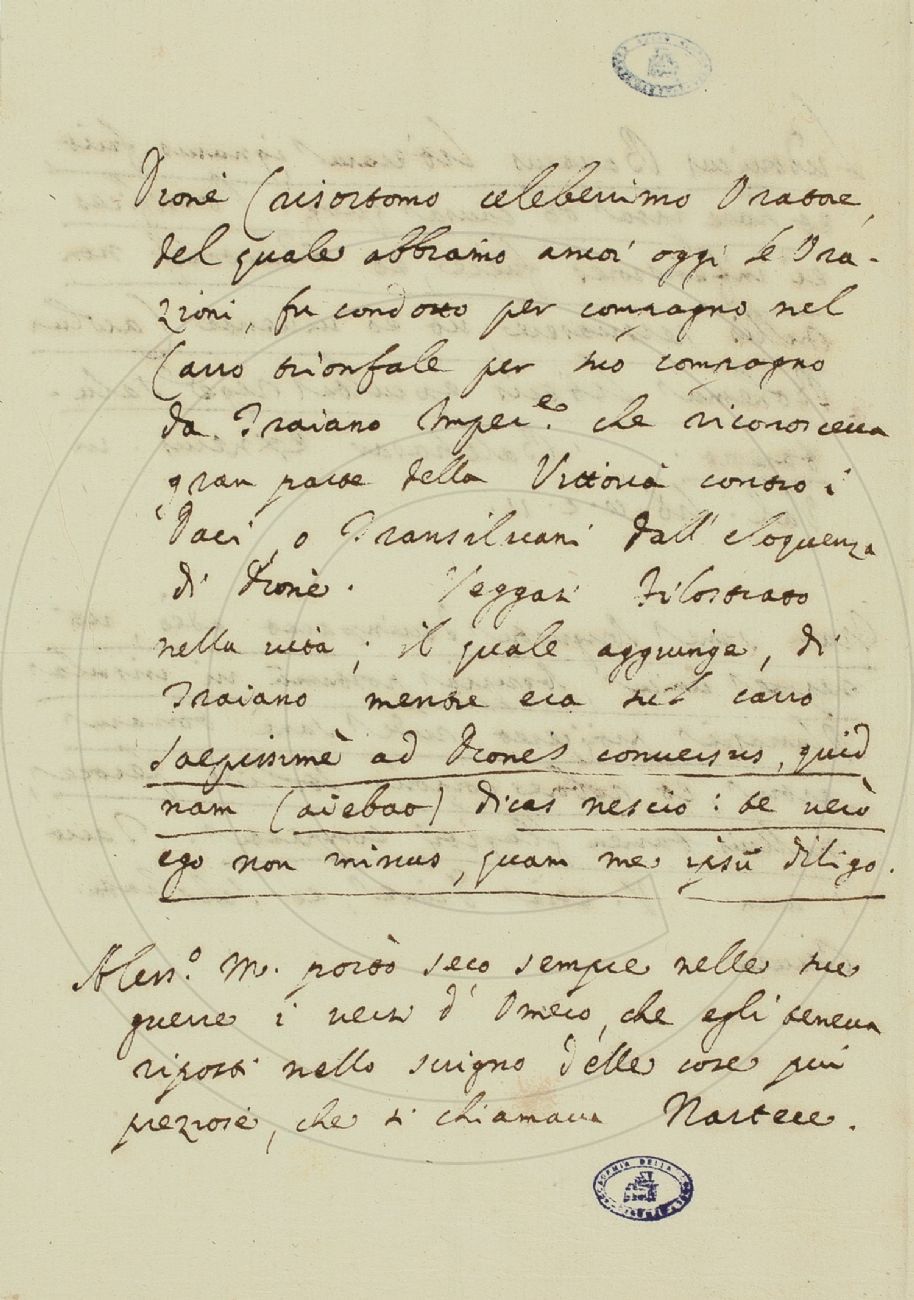 Dione Crisostomo celeberrimo Oratore,
del quale abbiamo ancor oggi le Ora-
zioni, fu condotto per compagno nel
Carro trionfale per suo compagno
da Traiano Imper.e che riconosceva
gran parte della Vittoria contro i
Daci, o Transilvani dall'eloquenza
di Dione. Veggasi Filostrato
nella vita; il quale aggiunge, di
Traiano mentre era sul carro
saepissimè ad Dionem conversus, quid
nam (aiebat) dicas nescio: te verò
ego non minus, quam me ipsū diligo.
Aless.o M. portò seco sempre nelle sue
guerre i versi d'Omero, che egli teneva
riposti nello scrigno delle cose più
preziose, che si chiamava Nartece.